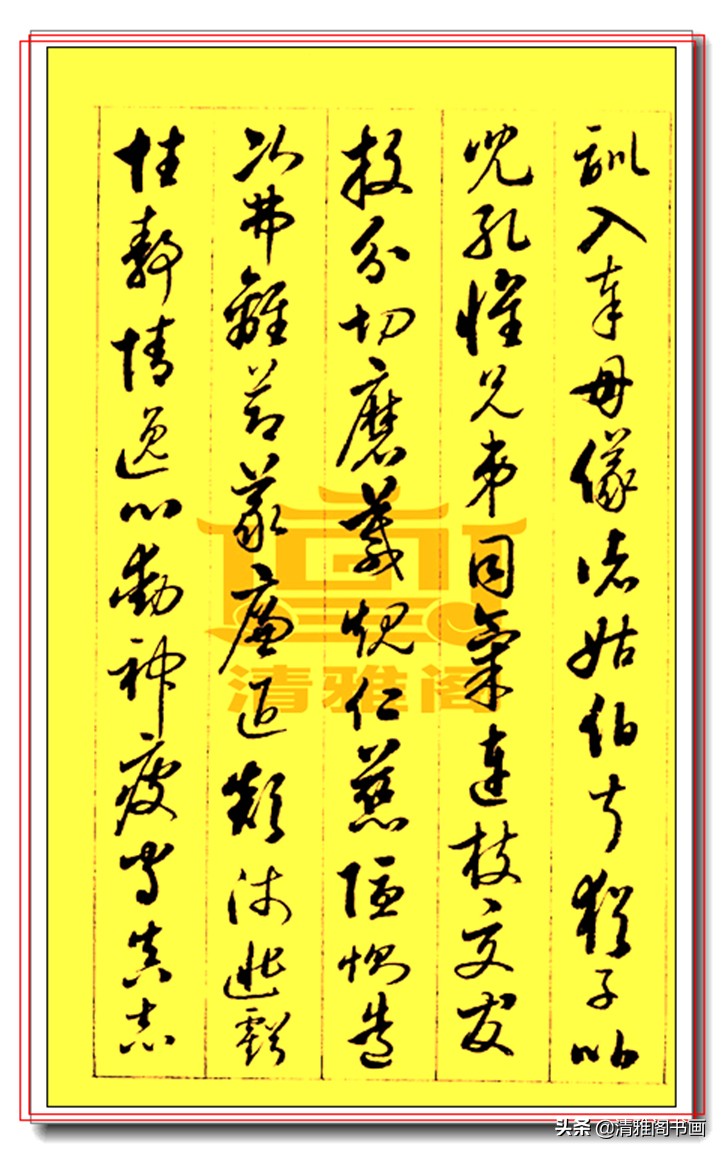 訓入奉母儀諸姑伯叔猶子比
兒孔懷兄弟同氣連枝交友
投分切磨箴規仁慈隱惻造
次弗離節義廉退顛沛匪虧
性靜情逸心動神疲守真志
清雅阁
头条 @清雅阁书画